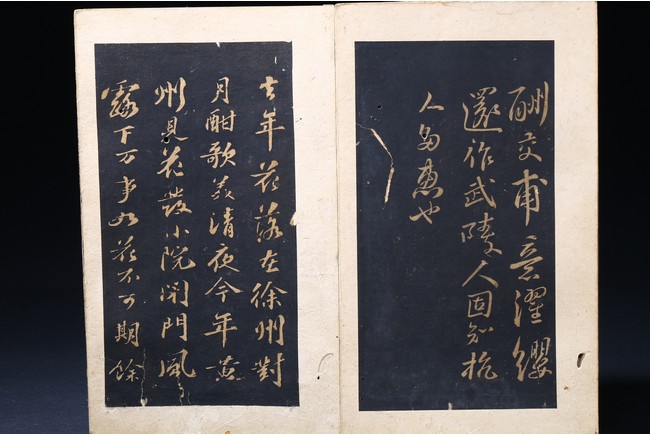 酬交甫意濯纓
還作武陵人固知
人多惠也
去年花落在徐州對
月酣歌美清夜今年黃
州見花發小院閉門風
露下万事如花不可期餘